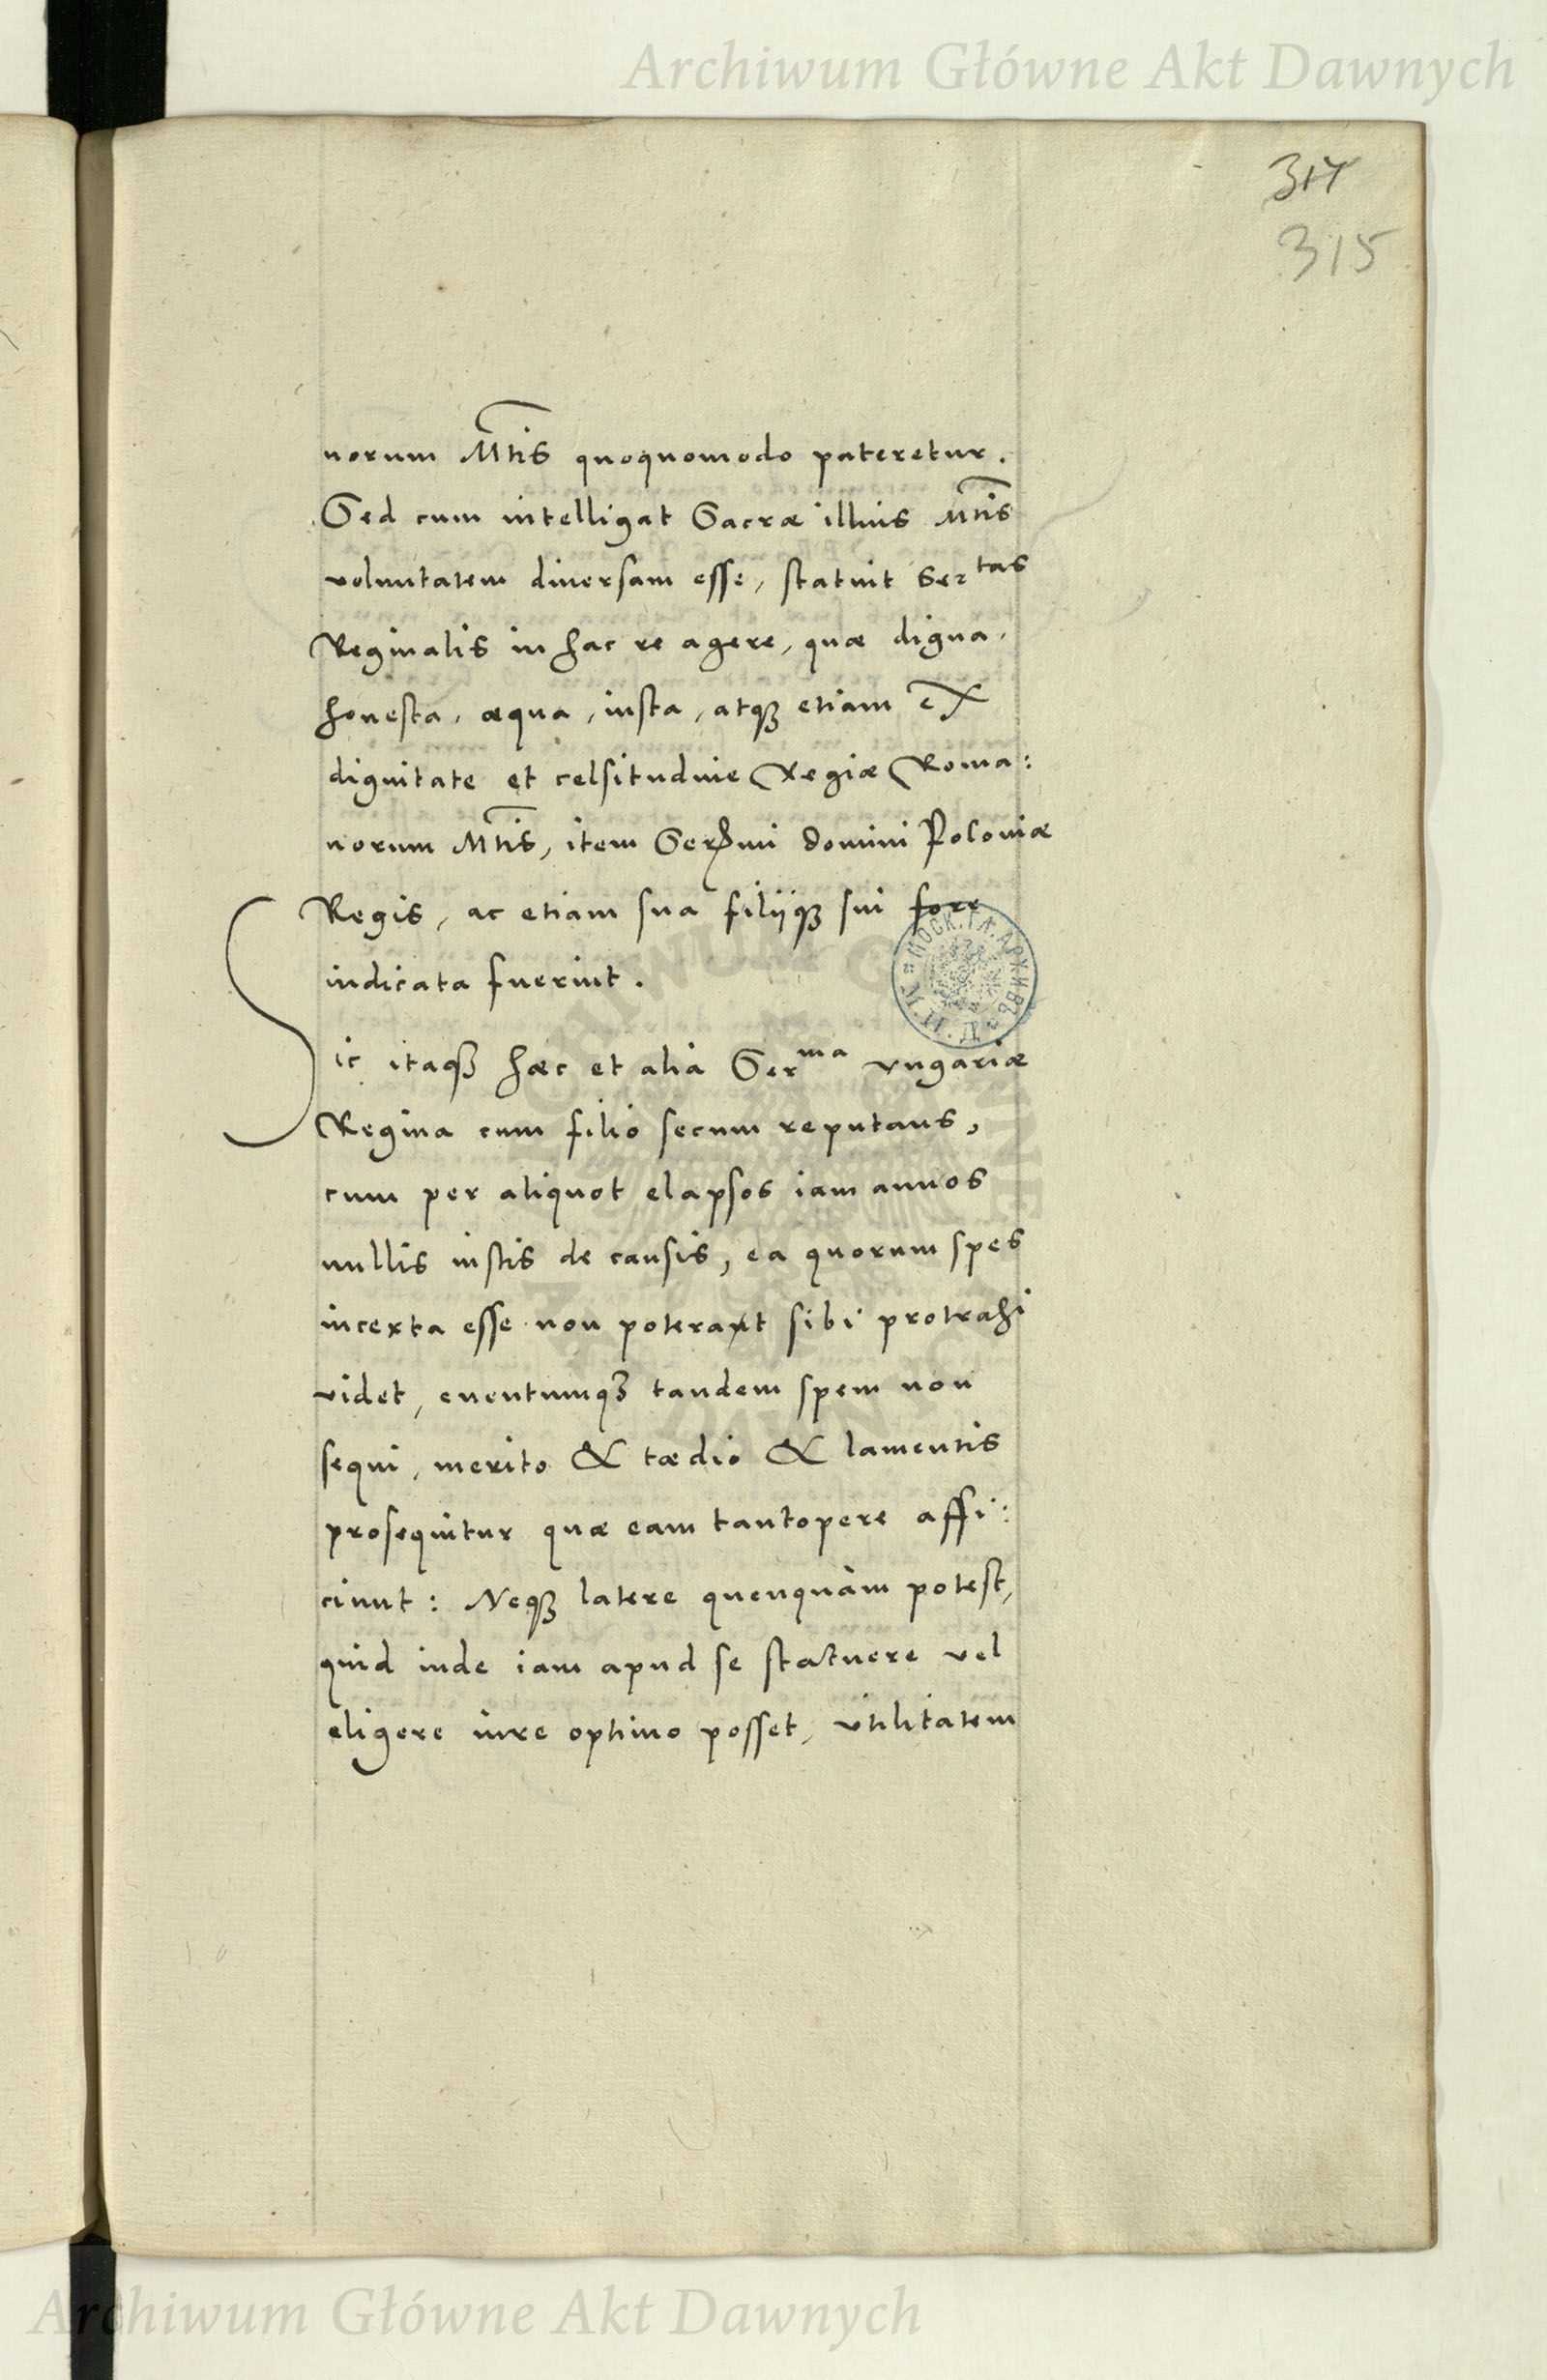 Archiwum Główne Akt Dawnych
317
315
norum Mtis quoquomodo pateretur.
Sed cum intelligat Sacræ illius Mtis
voluntatem diuersam esse, statuit Sertas
Reginalis in hac re agere, quæ digna,
honesta, æqua, iusta, atqꝫ etiam ex
dignitate et celsitudine Regiæ Roma:
norum Mtis, item Sermi domini Poloniæ
Regis, ac etiam sua filijqꝫ sui fore
iudicata fuerint.
Sic itaqꝫ hæc et alia Serma vngariæ
Regina cum filio secum reputans,
cum per aliquot elapsos iam annos
nullis iustis de causis, ea quorum spes
incerta esse non poterat sibi protrahi
videt, euentumqꝫ tandem spem non
sequi, merito & tædio & lamentis
prosequitur quæ eam tantopere affi:
ciunt: Neqꝫ latere quenquàm potest,
quid inde iam apud se statuere vel
eligere iure optimo posset, vtilitatem
Archiwum Główne Akt Dawnych